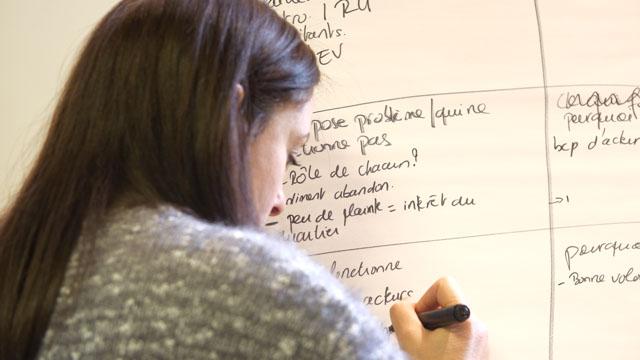 / RU
tants.
EV
pose problème / qui ne
tionne pas
- Rôle de chacun?
timent abandon.
- peu de plainte = intérêt du
quartier
fonctionne
acteurs
pourquoi
bcp d'acteur
→ 1
pourquoi
- Bonne volon